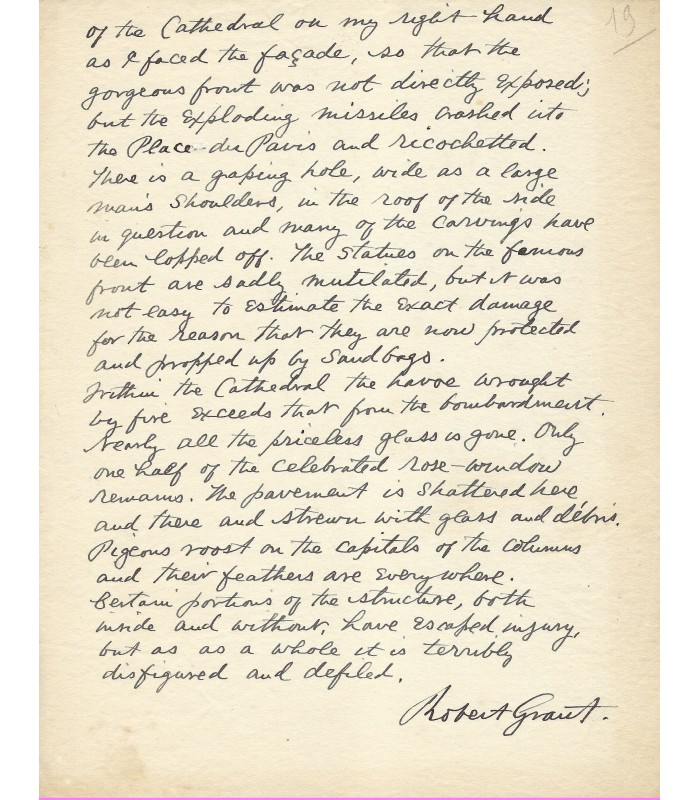 19
of the Cathedral on my right hand
as I faced the façade, so that the
gorgeous front was not directly exposed;
but the exploding missiles crashed into
the Place du Pavis and ricochetted.
There is a gaping hole, wide as a large
man's shoulders, in the roof of the side
in question and many of the carvings have
been lopped off. The statues on the famous
front are sadly mutilated, but it was
not easy to estimate the exact damage
for the reason that they are now protected
and propped up by sandbags.
Within the Cathedral the havoc wrought
by fire exceeds that from the bombardment.
Nearly all the priceless glass is gone. Only
one half of the celebrated rose-window
remains. The pavement is shattered here
and there and strewn with glass and débris.
Pigeons roost on the capitals of the columns
and their feathers are everywhere.
Certain portions of the structure, both
inside and without, have escaped injury,
but as as a whole it is terribly
disfigured and defiled.
Robert Grant.